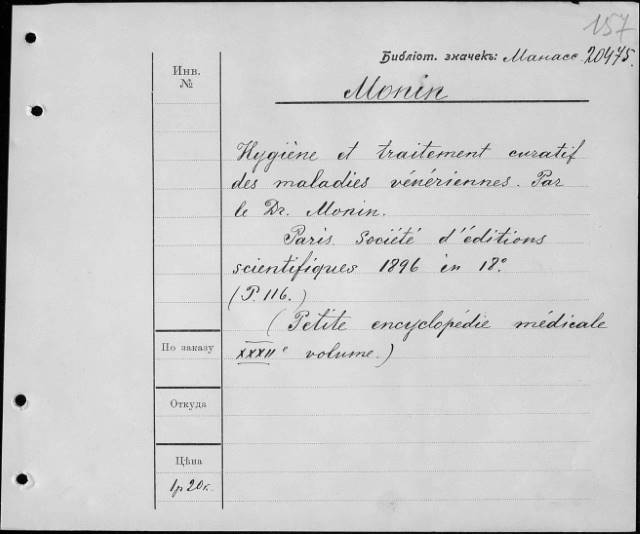 157
Библіот. значекъ: Манасс 20475.
Инв.
№
Monin
Hygiène et traitement curatif
des maladies vénériennes. Par
le Dr. Monin.
Paris. Société d'éditions
scientifiques 1896 in 18º.
(P. 116.)
(Petite encyclopédie médicale
XXXIIe volume.)
По заказу
Откуда
Цѣна
1р 20к.